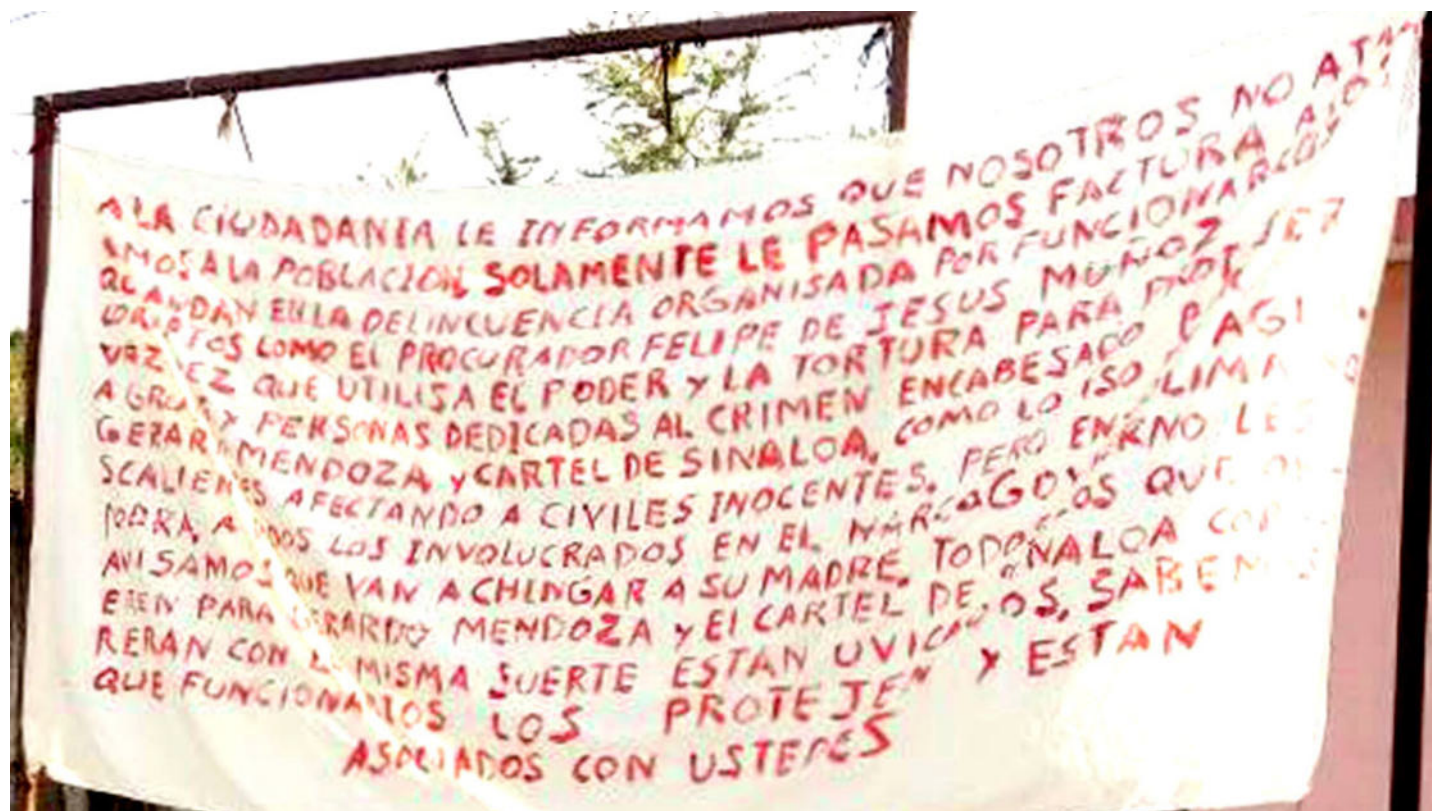 A LA CIUDADANIA LE INFORMAMOS QUE NOSOTROS NO
AMOS A LA POBLACION, SOLAMENTE LE PASAMOS FACTURA
ANDAN EN LA DELINCUENCIA ORGANISADA POR FUNCIONARIOS
COMO EL PROCURADOR FELIPE DE JESUS MUÑOZ
VAZ EZ QUE UTILISA EL PODER Y LA TORTURA PARA
A GRUPOS Y PERSONAS DEDICADAS AL CRIMEN ENCABESADO
MENDOZA, Y CARTEL DE SINALOA, COMO LO ISO
AFECTANDO A CIVILES INOCENTES, PERO
A TODOS LOS INVOLUCRADOS EN EL
AVISAMOS QUE VAN A CHINGAR A SU MADRE, QUE
PARA GERARDO MENDOZA Y El CARTEL DE
RERAN CON LA MISMA SUERTE ESTAN UVICADOS, SABEMOS
QUE FUNCIONARIOS LOS PROTEJEN Y ESTAN
ASOCIADOS CON USTEDES